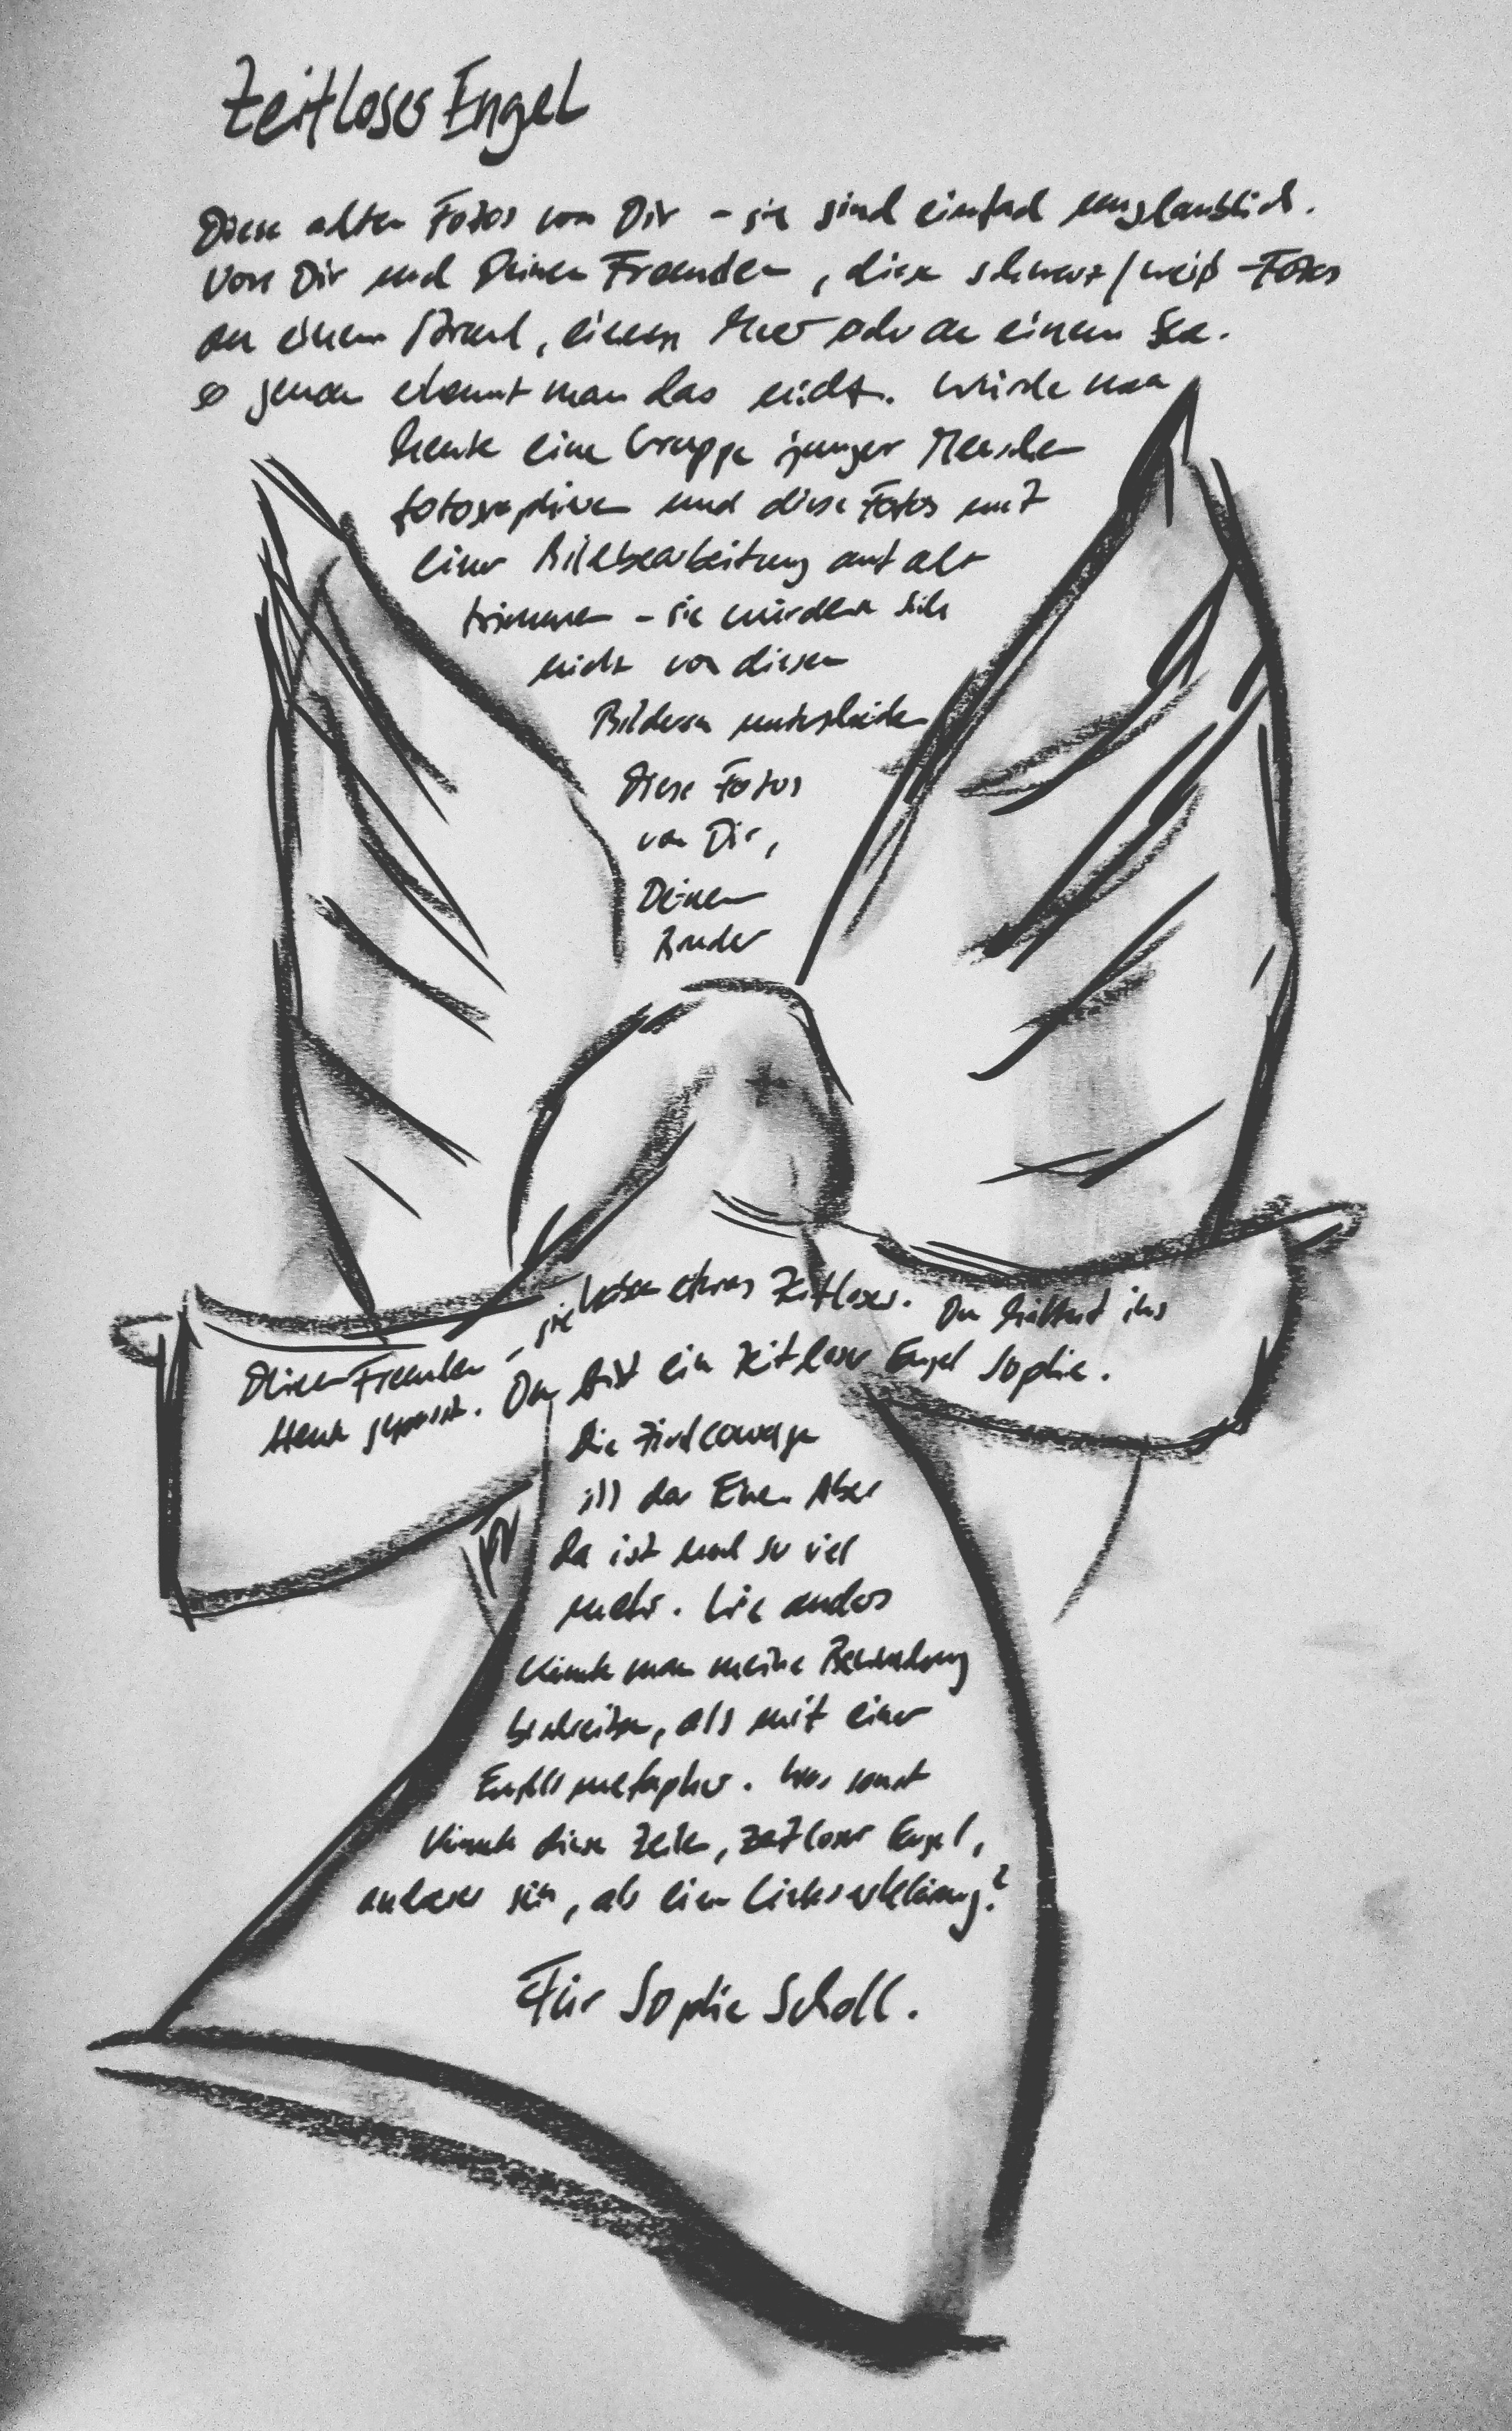 Zeitloser Engel
Diese alten Fotos von Dir - sie sind einfach unglaublich.
Von Dir und Deinen Freunden, diese schwarz/weiß-Fotos
an einem Strand, einem Meer oder an einem See.
so genau erkennt man das nicht. Würde man
heute eine Gruppe junger Menschen
fotographieren und diese Fotos mit
einer Bildbearbeitung auf alt
trimmen - sie würden sich
nicht von diesen
Bildern unterscheiden
Diese Fotos
von Dir,
Deinem
Bruder
Deinen Freunden, sie haben etwas Zeitloses. Du hättest ins
Heute gepasst. Du bist ein zeitloser Engel Sophie.
Die Zivilcourage
ist das Eine. Aber
da ist noch so viel
mehr. Wie anders
könnte man meine Bewunderung
beschreiben, als mit einer
Engelsmetapher. Was sonst
könnte diese Zeilen, zeitloser Engel,
anderes sein, als eine Liebeserklärung?
Für Sophie Scholl.